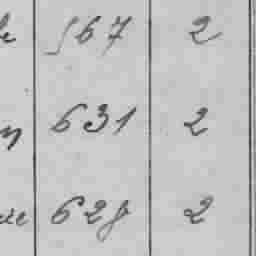 567 2
631 2
628 2